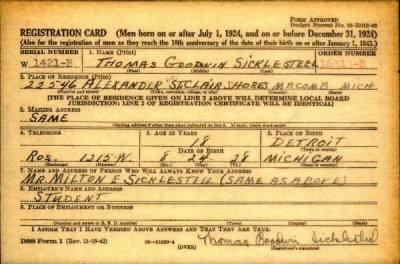 FORM APPROVED
Budget Bureau No. 33-R012-42
REGISTRATION CARD (Men born on or after July 1, 1924, and on or before December 31, 1924)
(Also for the registration of men as they reach the 18th anniversary of the date of their birth on or after January 1, 1943.)
SERIAL NUMBER
1. NAME (Print)
ORDER NUMBER
W 1421-B
THOMAS GOODWIN SICKLESTEEL
(First) (Middle) (Last)
2. PLACE OF RESIDENCE (Print)
22546 ALEXANDER ST. CLAIR SHORES MACOMB MICH
(Number and street) (Town, township, village, or city) (County) (State)
[THE PLACE OF RESIDENCE GIVEN ON LINE 2 ABOVE WILL DETERMINE LOCAL BOARD
JURISDICTION; LINE 2 OF REGISTRATION CERTIFICATE WILL BE IDENTICAL]
3. MAILING ADDRESS
SAME
(Mailing address if other than place indicated on line 2. If same, insert word same)
4. TELEPHONE
5. AGE IN YEARS
6. PLACE OF BIRTH
18
DETROIT
DATE OF BIRTH
(Town or county)
ROS. 1215-W.
8 24 28
MICHIGAN
(Exchange) (Number)
(Mo.) (Day) (Yr.)
(State or country)
7. NAME AND ADDRESS OF PERSON WHO WILL ALWAYS KNOW YOUR ADDRESS
MR. MILTON E. SICKLESTEEL (SAME AS ABOVE)
8. EMPLOYER'S NAME AND ADDRESS
STUDENT
9. PLACE OF EMPLOYMENT OR BUSINESS
(Number and street or R. F. D. number) (Town) (County) (State)
I AFFIRM THAT I HAVE VERIFIED ABOVE ANSWERS AND THAT THEY ARE TRUE.
DSS Form 1 (Rev. 11-16-42)
(OVER)
Thomas Goodwin Sicklesteel